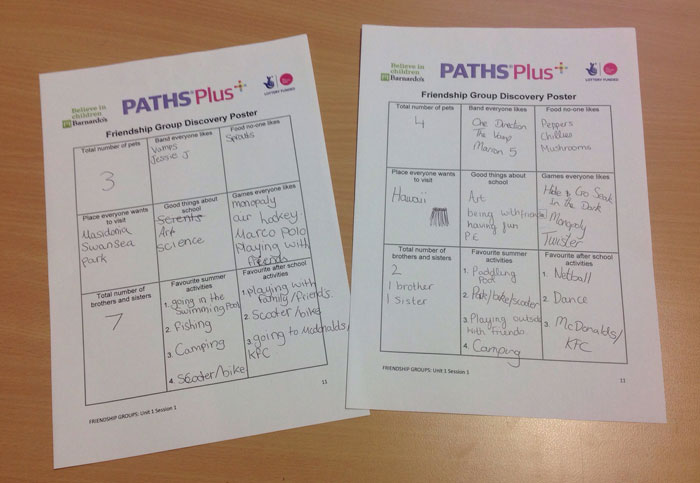 Believe in
children
Barnardo's
PATHS Plus+
LOTTERY FUNDED
Friendship Group Discovery Poster
Total number of pets
3
Band everyone likes
Vamps
Jessie J
Food no-one likes
Sprouts
Place everyone wants
to visit
Masidonia
Swansea
Park
Good things about
school
Scients
Art
science
Games everyone likes
monopoly
air hockey
Marco Polo
Playing with
friends
Total number of
brothers and sisters
7
Favourite summer
activities
1. going in the
Swimming Pool
2. Fishing
3. Camping
4. Scooter/bike
Favourite after school
activities
1. playing with
family/friends.
2. Scooter/bike
3. going to Mcdonalds/
KFC
15
FRIENDSHIP GROUPS: Unit 1 Session 1
Believe in
children
Barnardo's
PATHS Plus+
LOTTERY FUNDED
Friendship Group Discovery Poster
Total number of pets
4
Band everyone likes
One Direction
The Vamp
Maroon 5
Food no-one likes
Peppers
Chillies
Mushrooms
Place everyone wants
to visit
Hawaii
Good things about
school
Art
being with friends
having fun
P.E
Games everyone likes
Hide & Go Seak
In the Dark
Monopoly
Twister
Total number of
brothers and sisters
2
1 brother
1 Sister
Favourite summer
activities
1. Paddling
Pool
2. Park/bike/scooter
3. Playing outside
with friends.
4. Camping
Favourite after school
activities
1. Netball
2. Dance
3. McDonalds/
KFC
11
FRIENDSHIP GROUPS: Unit 1 Session 1